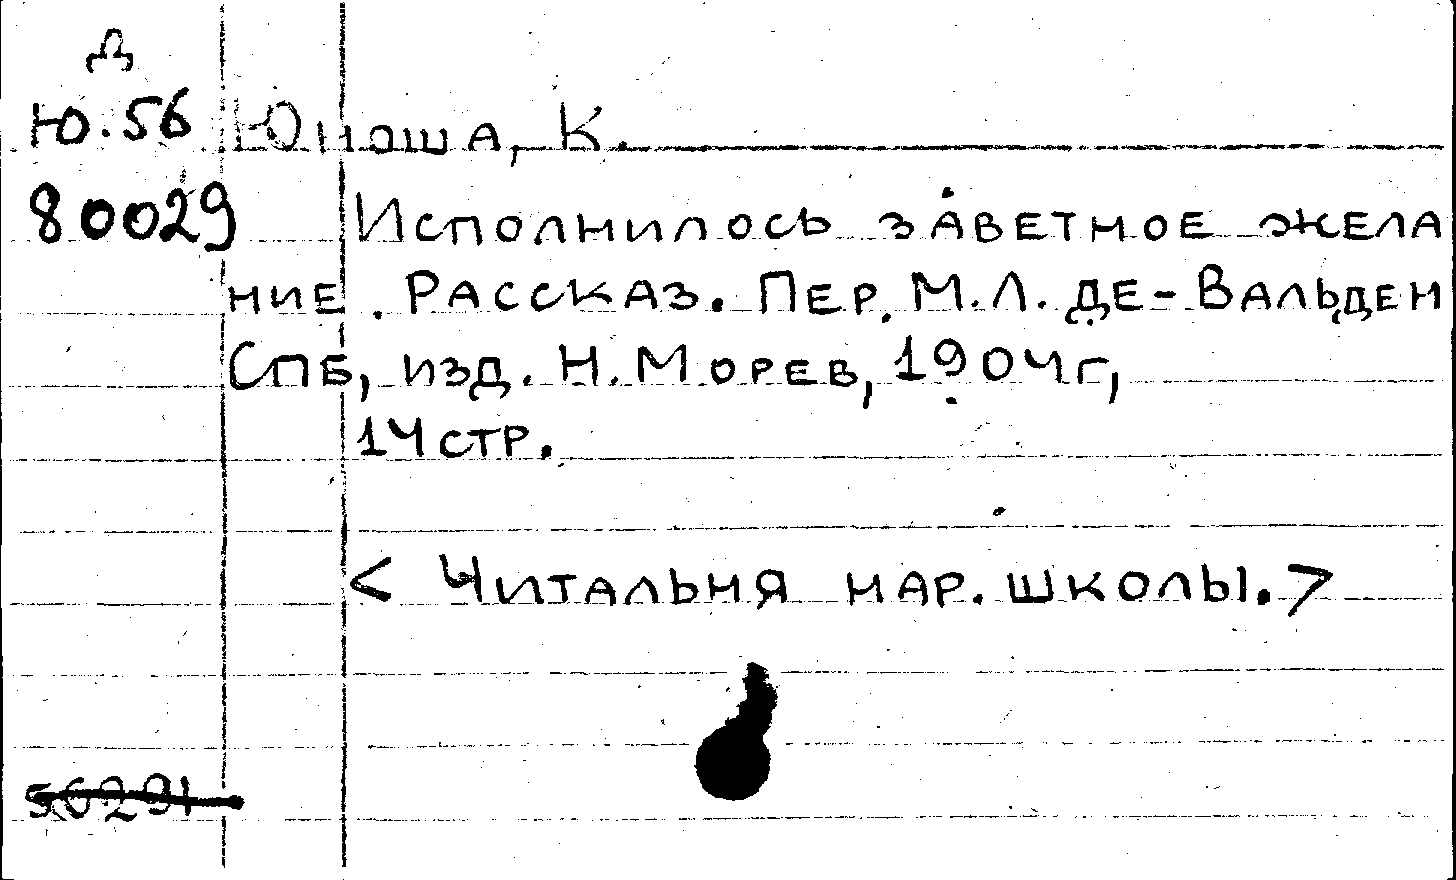 Д
Ю.56 Юноша, К.
80029 Исполнилось заветное жела
ние. Рассказ. Пер. М.Л. де-Вальден
Спб, изд. Н. Морев, 1904г,
14 стр.
< Читальня нар. школы. >
56291